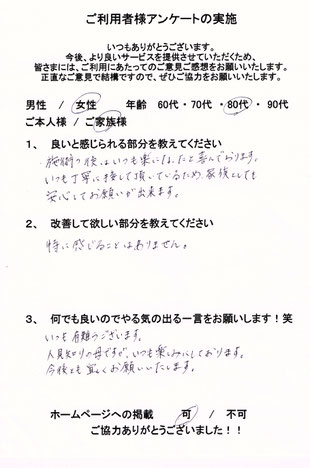 ご利用者様アンケートの実施
いつもありがとうございます。
今後、より良いサービスを提供させていただくため、
皆さまには、ご利用にあたってのご意見ご感想をお願いいたします。
正直なご意見で結構ですので、ぜひご協力をお願いいたします。
男性 / 女性 年齢 60代・70代・80代・90代
ご本人様 / ご家族様
1、 良いと感じられる部分を教えてください
施術の後はいつも楽になったと喜んでおります。
いつも丁寧に接して頂いているため、家族としても
安心してお願いが出来ます。
2、 改善して欲しい部分を教えてください
特に感じることはありません。
3、 何でも良いのでやる気の出る一言をお願いします！笑
いつも有難うございます。
人見知りの母ですが、いつも楽しみにしております。
今後とも宜しくお願いいたします。
ホームページへの掲載 可 / 不可
ご協力ありがとうございました！！